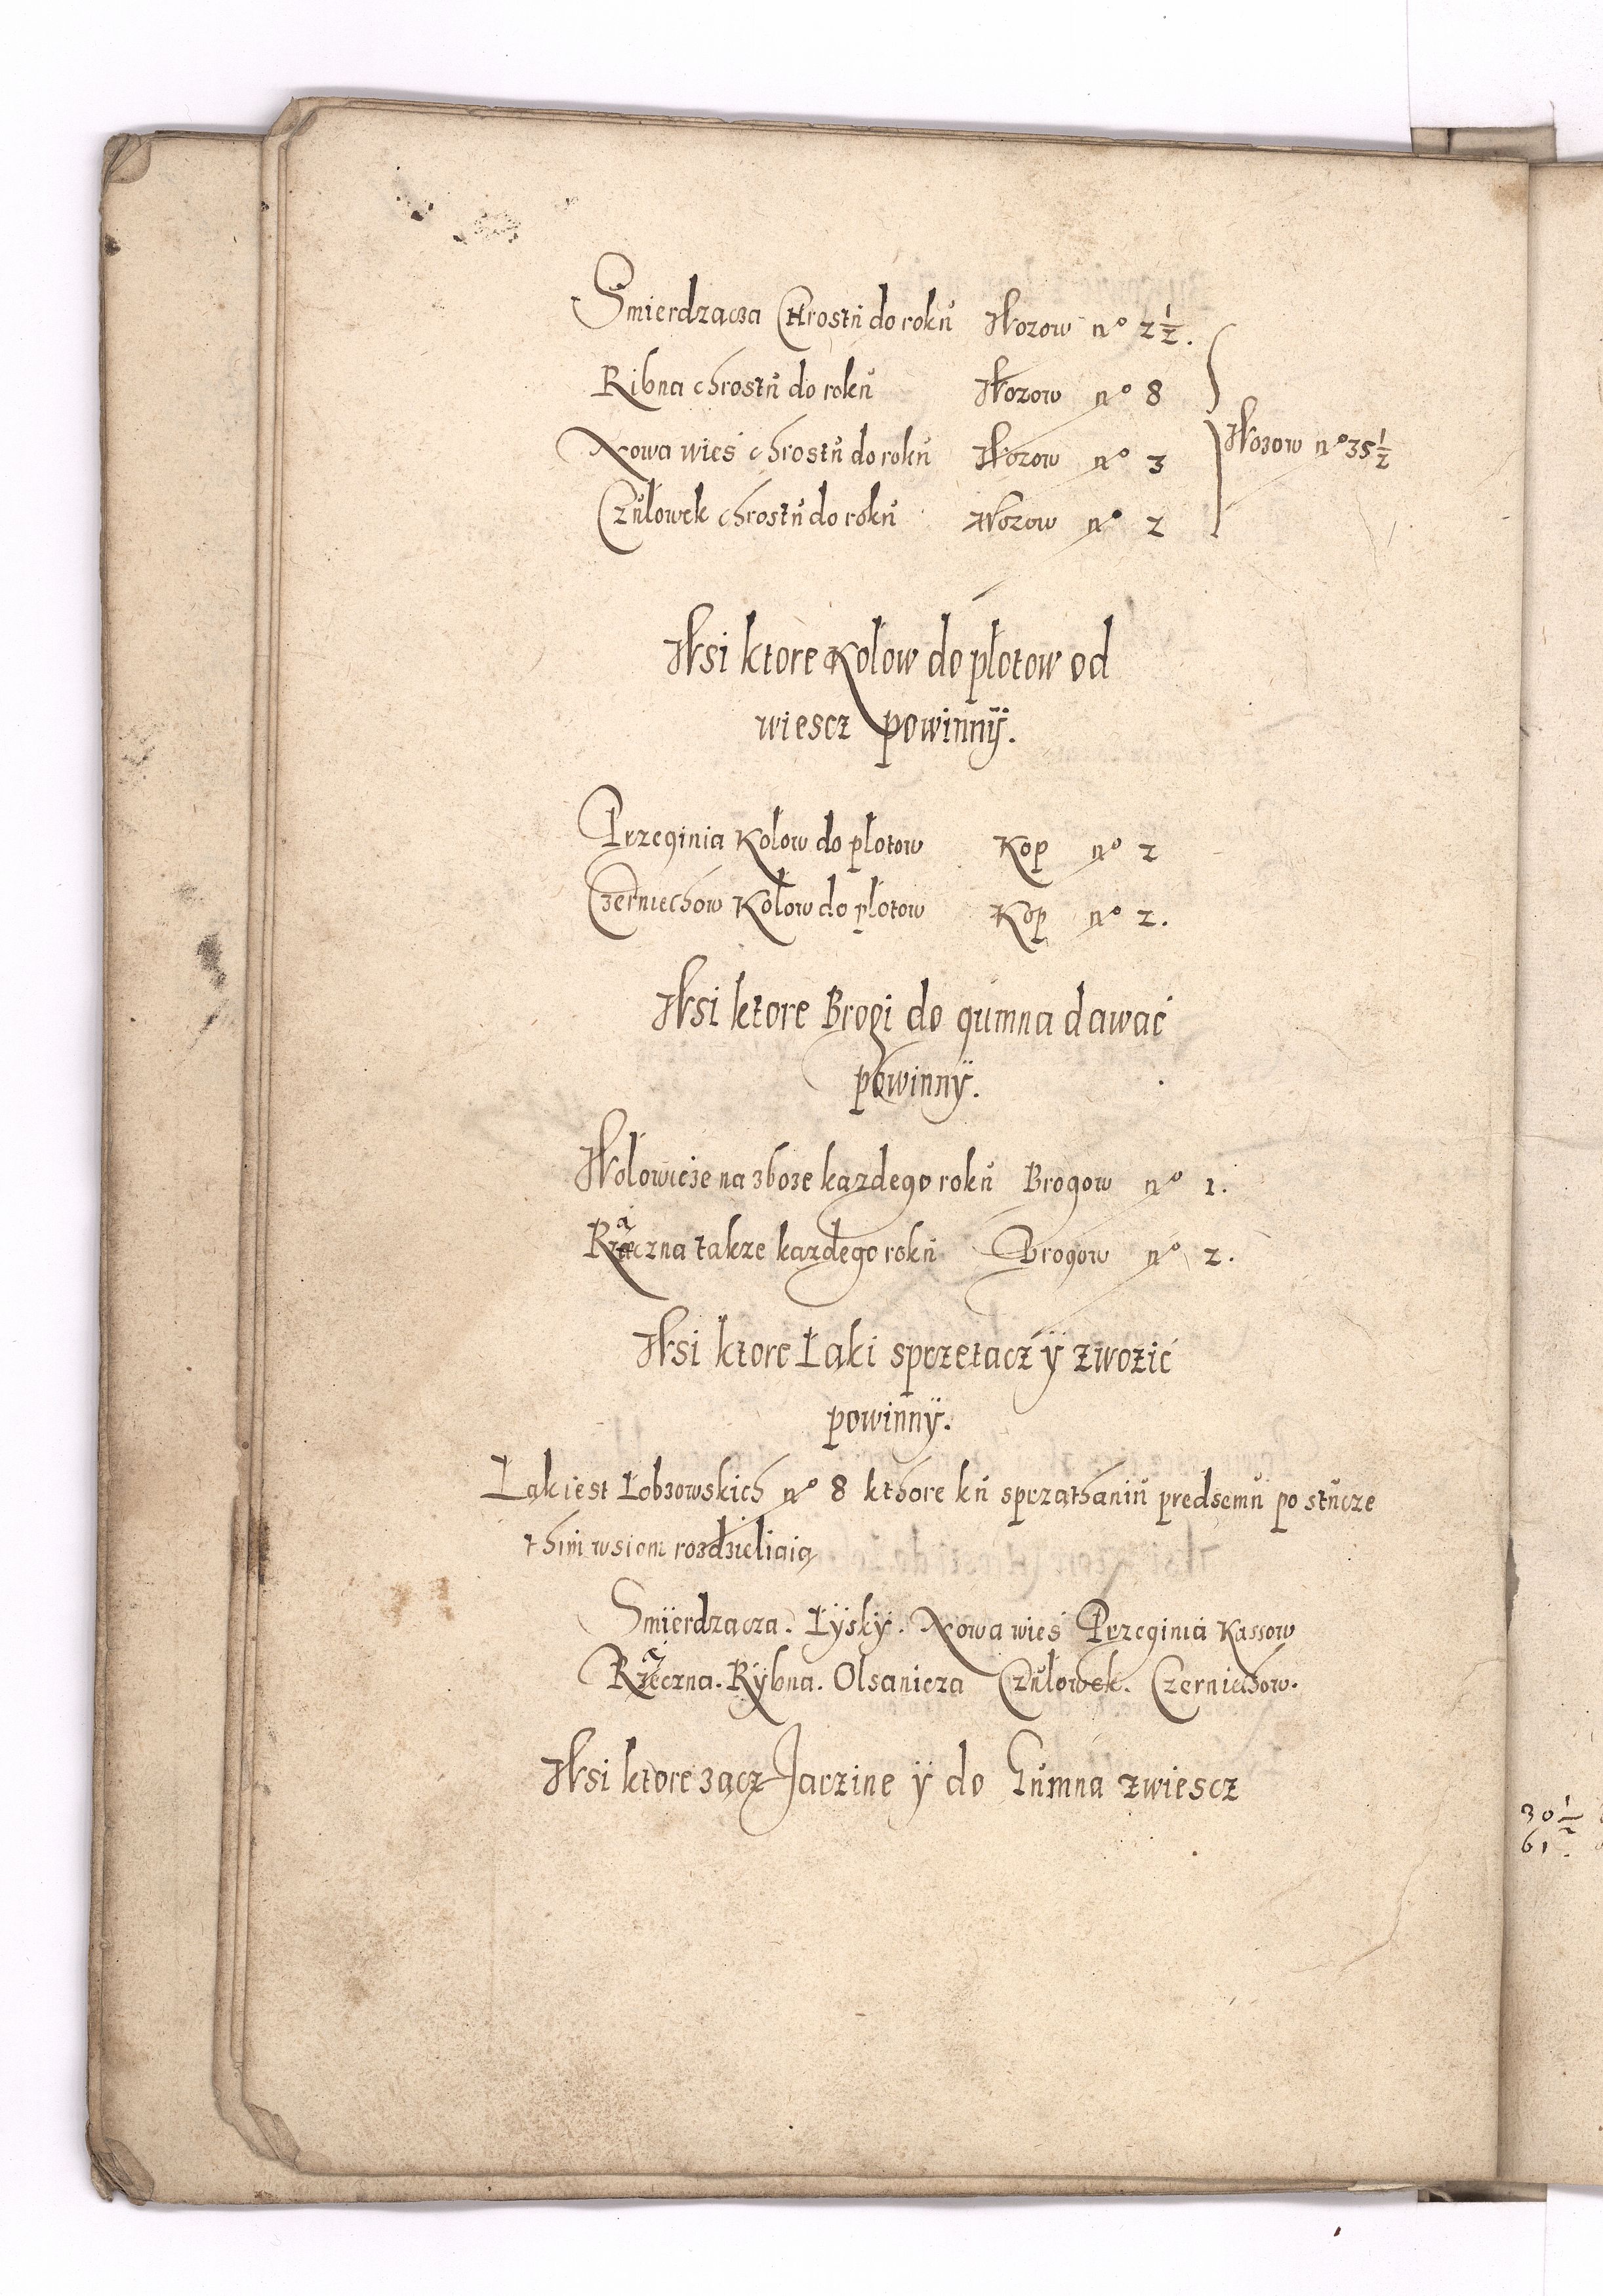 Smierdzacza Chrostu do roku Wozow nº 2 1/2.
Ribna chrostu do roku Wozow nº 8
Nowa wieś chrostu do roku Wozow nº 3
Wozow nº 35 1/2
Czułowek chrostu do roku Wozow nº 2
Wsi ktore Kołow do płotow od
wiescz powinnÿ.
Przeginia Kołow do płotow Kop nº 2
Czerniechow Kołow do płotow Kop nº 2.
Wsi ktore Brogi do gumna dawać
powinnÿ.
Wołowicze na zboze kazdego roku Brogow nº 1.
Rzączna takze kazdego roku Brogow nº 2.
Wsi ktore Łąki sprzetacz ÿ zwozić
powinnÿ.
Łąk iest Łobzowskich nº 8 kthore ku sprzathaniu predsemu po stucze
thim wsiom rozdzieliaią
Smierdzacza. Łÿskÿ. Nowa wieś Przeginia Kassow
Rzączna. Rÿbna. Olsanicza Czułowek. Czerniechow.
Wsi ktore zącz Jarzine ÿ do Gumna zwiescz
30 1/2
61.